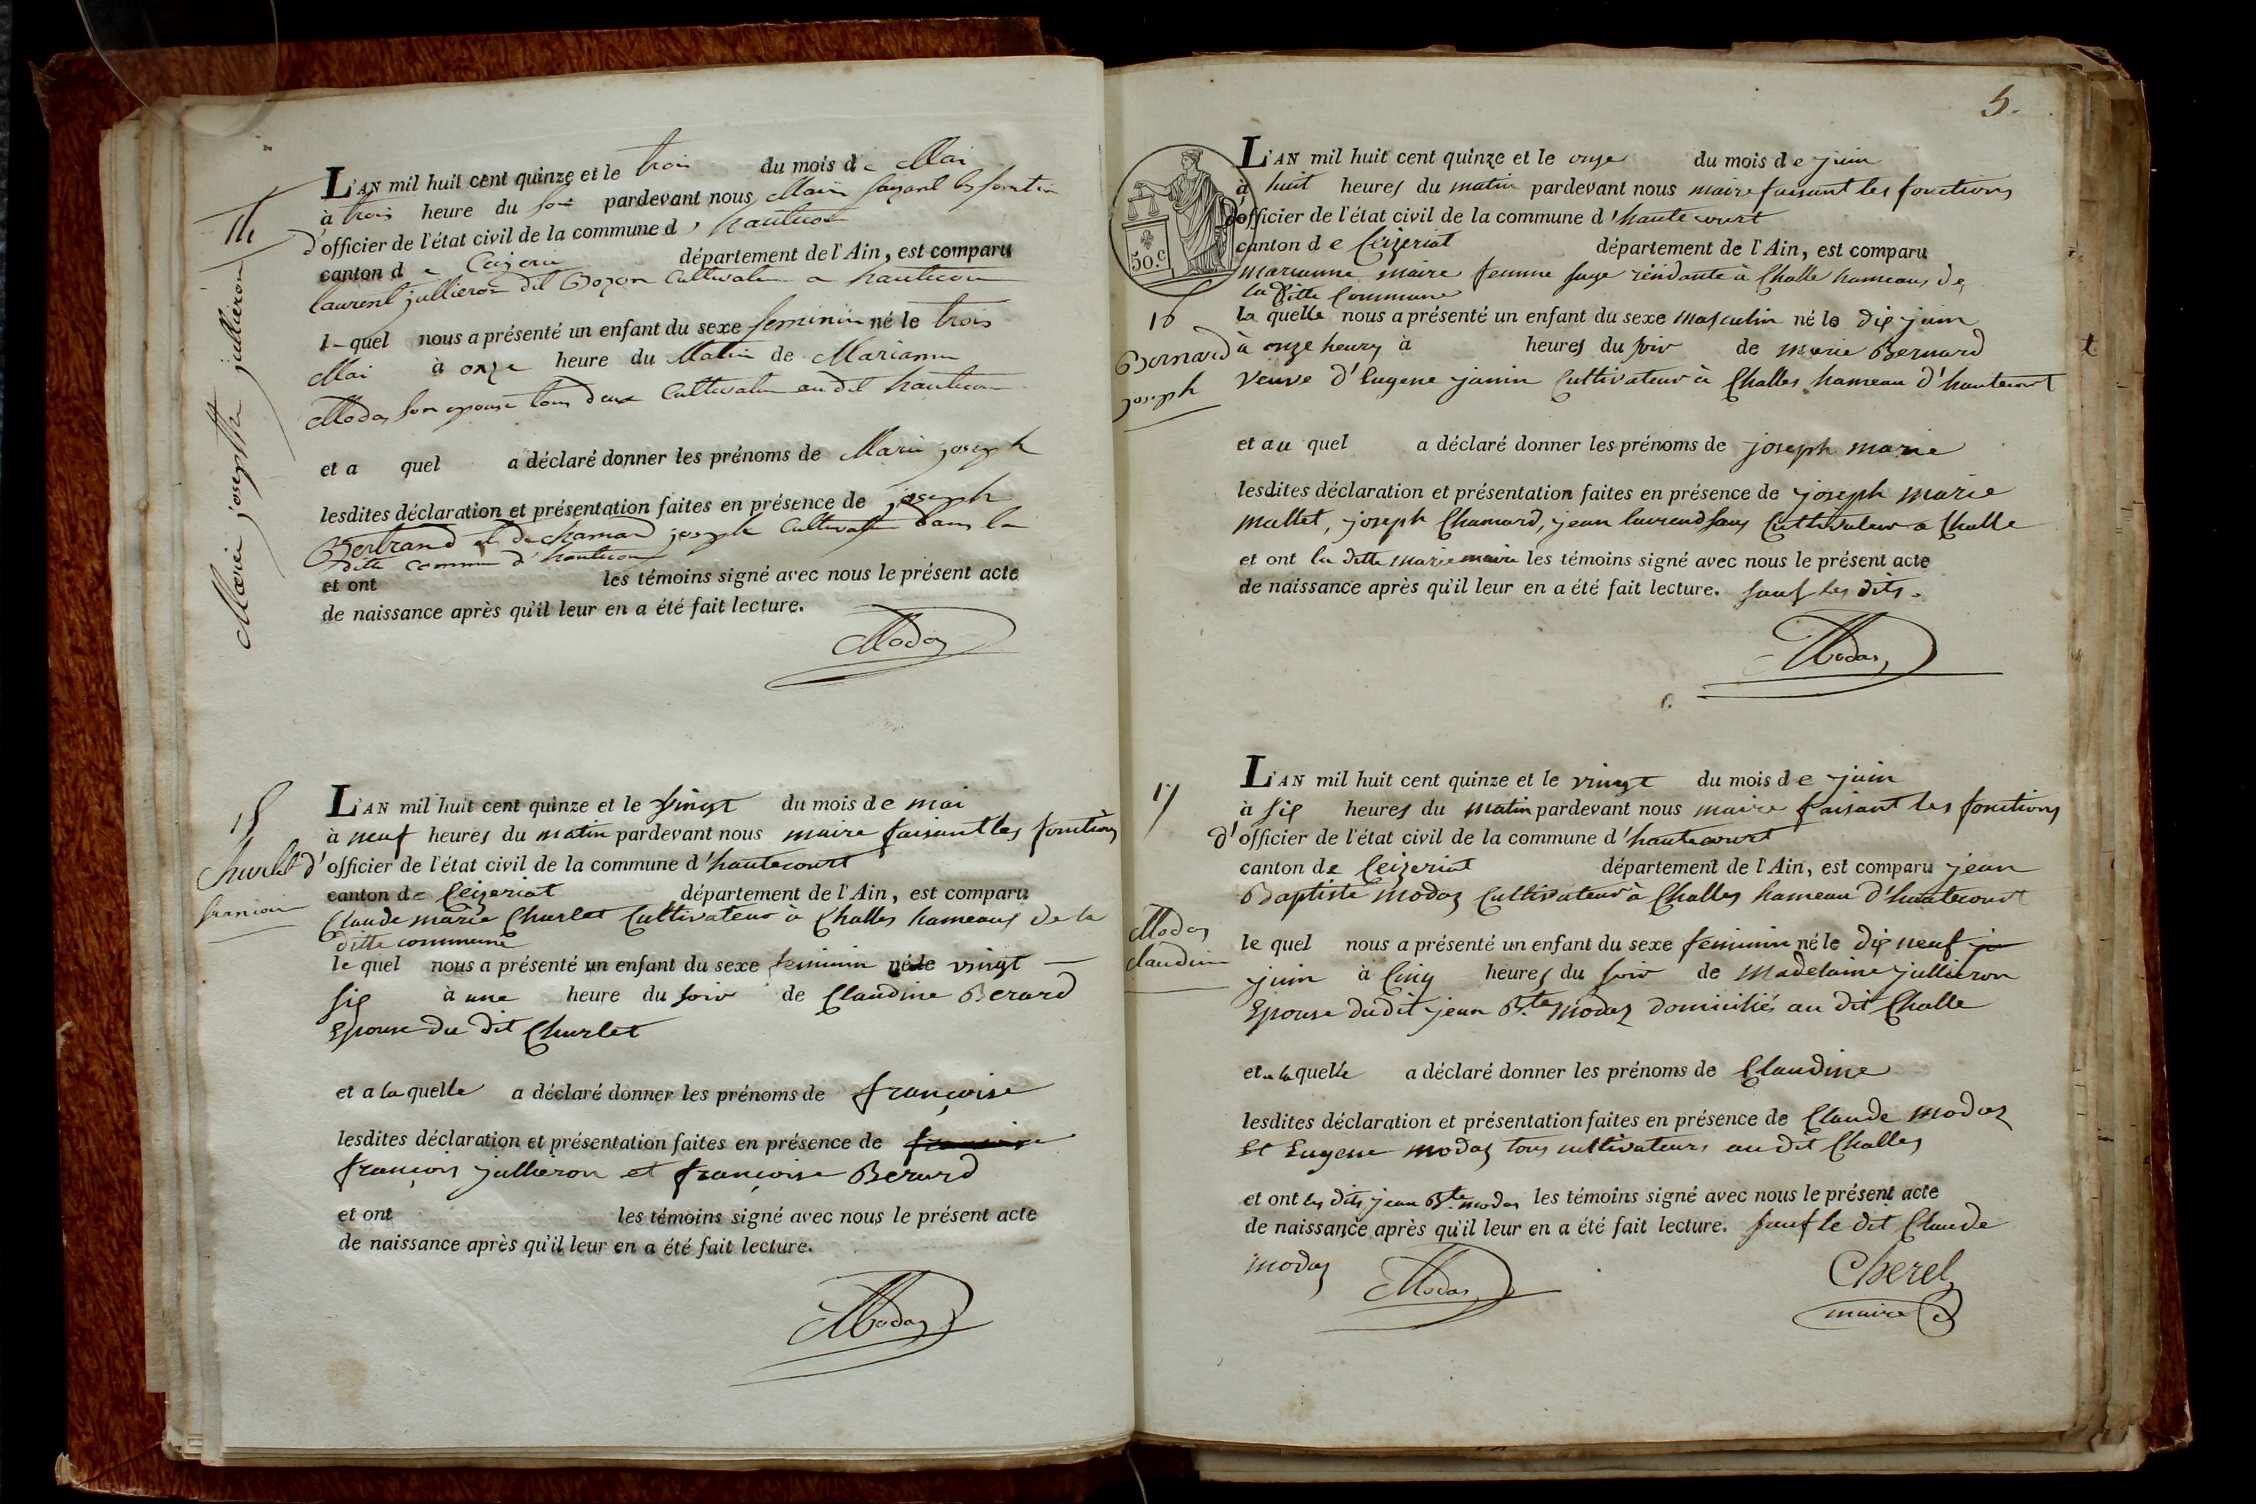 14
Marie josephte jullieron
L'AN mil huit cent quinze et le trois du mois de Mai
à trois heure du soir pardevant nous Maire faisant les fonction
d'officier de l'état civil de la commune d'hautecour
canton de département de l'Ain, est comparu
laurent jullieron dit Bozon Cultivateur a hautecour
l-quel nous a présenté un enfant du sexe feminin né le trois
Mai à onze heure du Matin de Marianne
Modas son epouse tous deux Cultivateur au dit hautecour
et a quel a déclaré donner les prénoms de Marie joseph
lesdites déclaration et présentation faites en présence de joseph
Bertrand et de chamard joseph Cultivateur dans la
ditte commune d'hautecour
et ont les témoins signé avec nous le présent acte
de naissance après qu'il leur en a été fait lecture.
Modas
15
Churlet
L'AN mil huit cent quinze et le vingt du mois de mai
à neuf heures du matin pardevant nous maire faisant les fonctions
d'officier de l'état civil de la commune d'hautecourt
canton de Ceizeriat département de l'Ain, est comparu
Claude marie Churlet Cultivateur à Challes hameaux de la
ditte commune
le quel nous a présenté un enfant du sexe feminin né le vingt
six à une heure du soir de Claudine Berard
Epouse du dit Churlet
et a la quelle a déclaré donner les prénoms de françoise
lesdites déclaration et présentation faites en présence de
françois jullieron et françoise Berard
et ont les témoins signé avec nous le présent acte
de naissance après qu'il leur en a été fait lecture.
Modas
5.
50.c
16
Bernard
joseph
L'AN mil huit cent quinze et le onze du mois de juin
à huit heures du matin pardevant nous maire faisant les fonctions
d'officier de l'état civil de la commune d'hautecourt
canton de Ceizeriat département de l'Ain, est comparu
marianne maire femme sage résidante à Challe hameaux de
la ditte Commune
la quelle nous a présenté un enfant du sexe masculin né le dix juin
à onze heures à heures du soir de marie Bernard
Veuve d'Eugene janin Cultivateur à Challes hameau d'hautecourt
et au quel a déclaré donner les prénoms de joseph marie
lesdites déclaration et présentation faites en présence de joseph marie
mallet, joseph Chamard, jean laurend Cultivateur a Challe
et ont la ditte marie maire les témoins signé avec nous le présent acte
de naissance après qu'il leur en a été fait lecture. sauf les dits.
Modas
17
Modas
claudine
L'AN mil huit cent quinze et le vingt du mois de juin
à six heures du matin pardevant nous maire faisant les fonctions
d'officier de l'état civil de la commune d'hautecourt
canton de Ceizeriat département de l'Ain, est comparu jean
Baptiste modas Cultivateur à Challes hameau d'hautecourt
le quel nous a présenté un enfant du sexe feminin né le dix neuf
juin à Cinq heures du soir de madelaine jullieron
Epouse du dit jean B.te modas domiciliés au dit Challe
et a la quelle a déclaré donner les prénoms de Claudine
lesdites déclaration et présentation faites en présence de Claude modas
Et Eugene modas tous cultivateurs au dit Challes
et ont les dits jean B.te modas les témoins signé avec nous le présent acte
de naissance après qu'il leur en a été fait lecture. sauf le dit Claude
modas
Modas
Cherel
maire